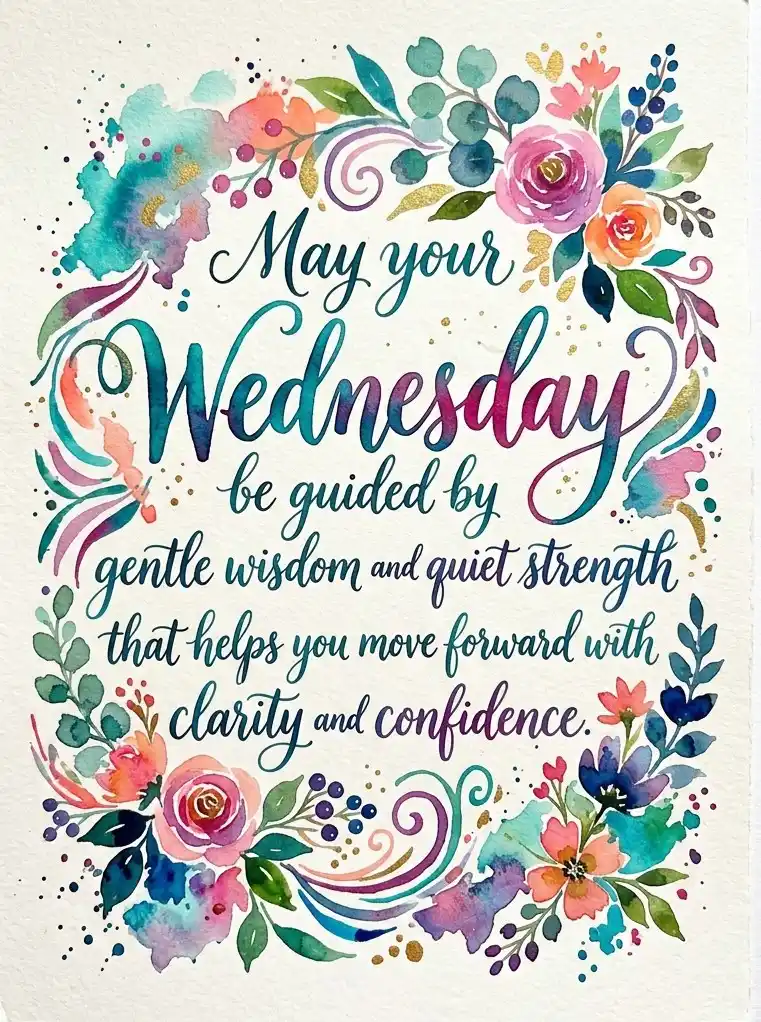 May your
Wednesday
be guided by
gentle wisdom and quiet strength
that helps you move forward with
clarity and confidence.